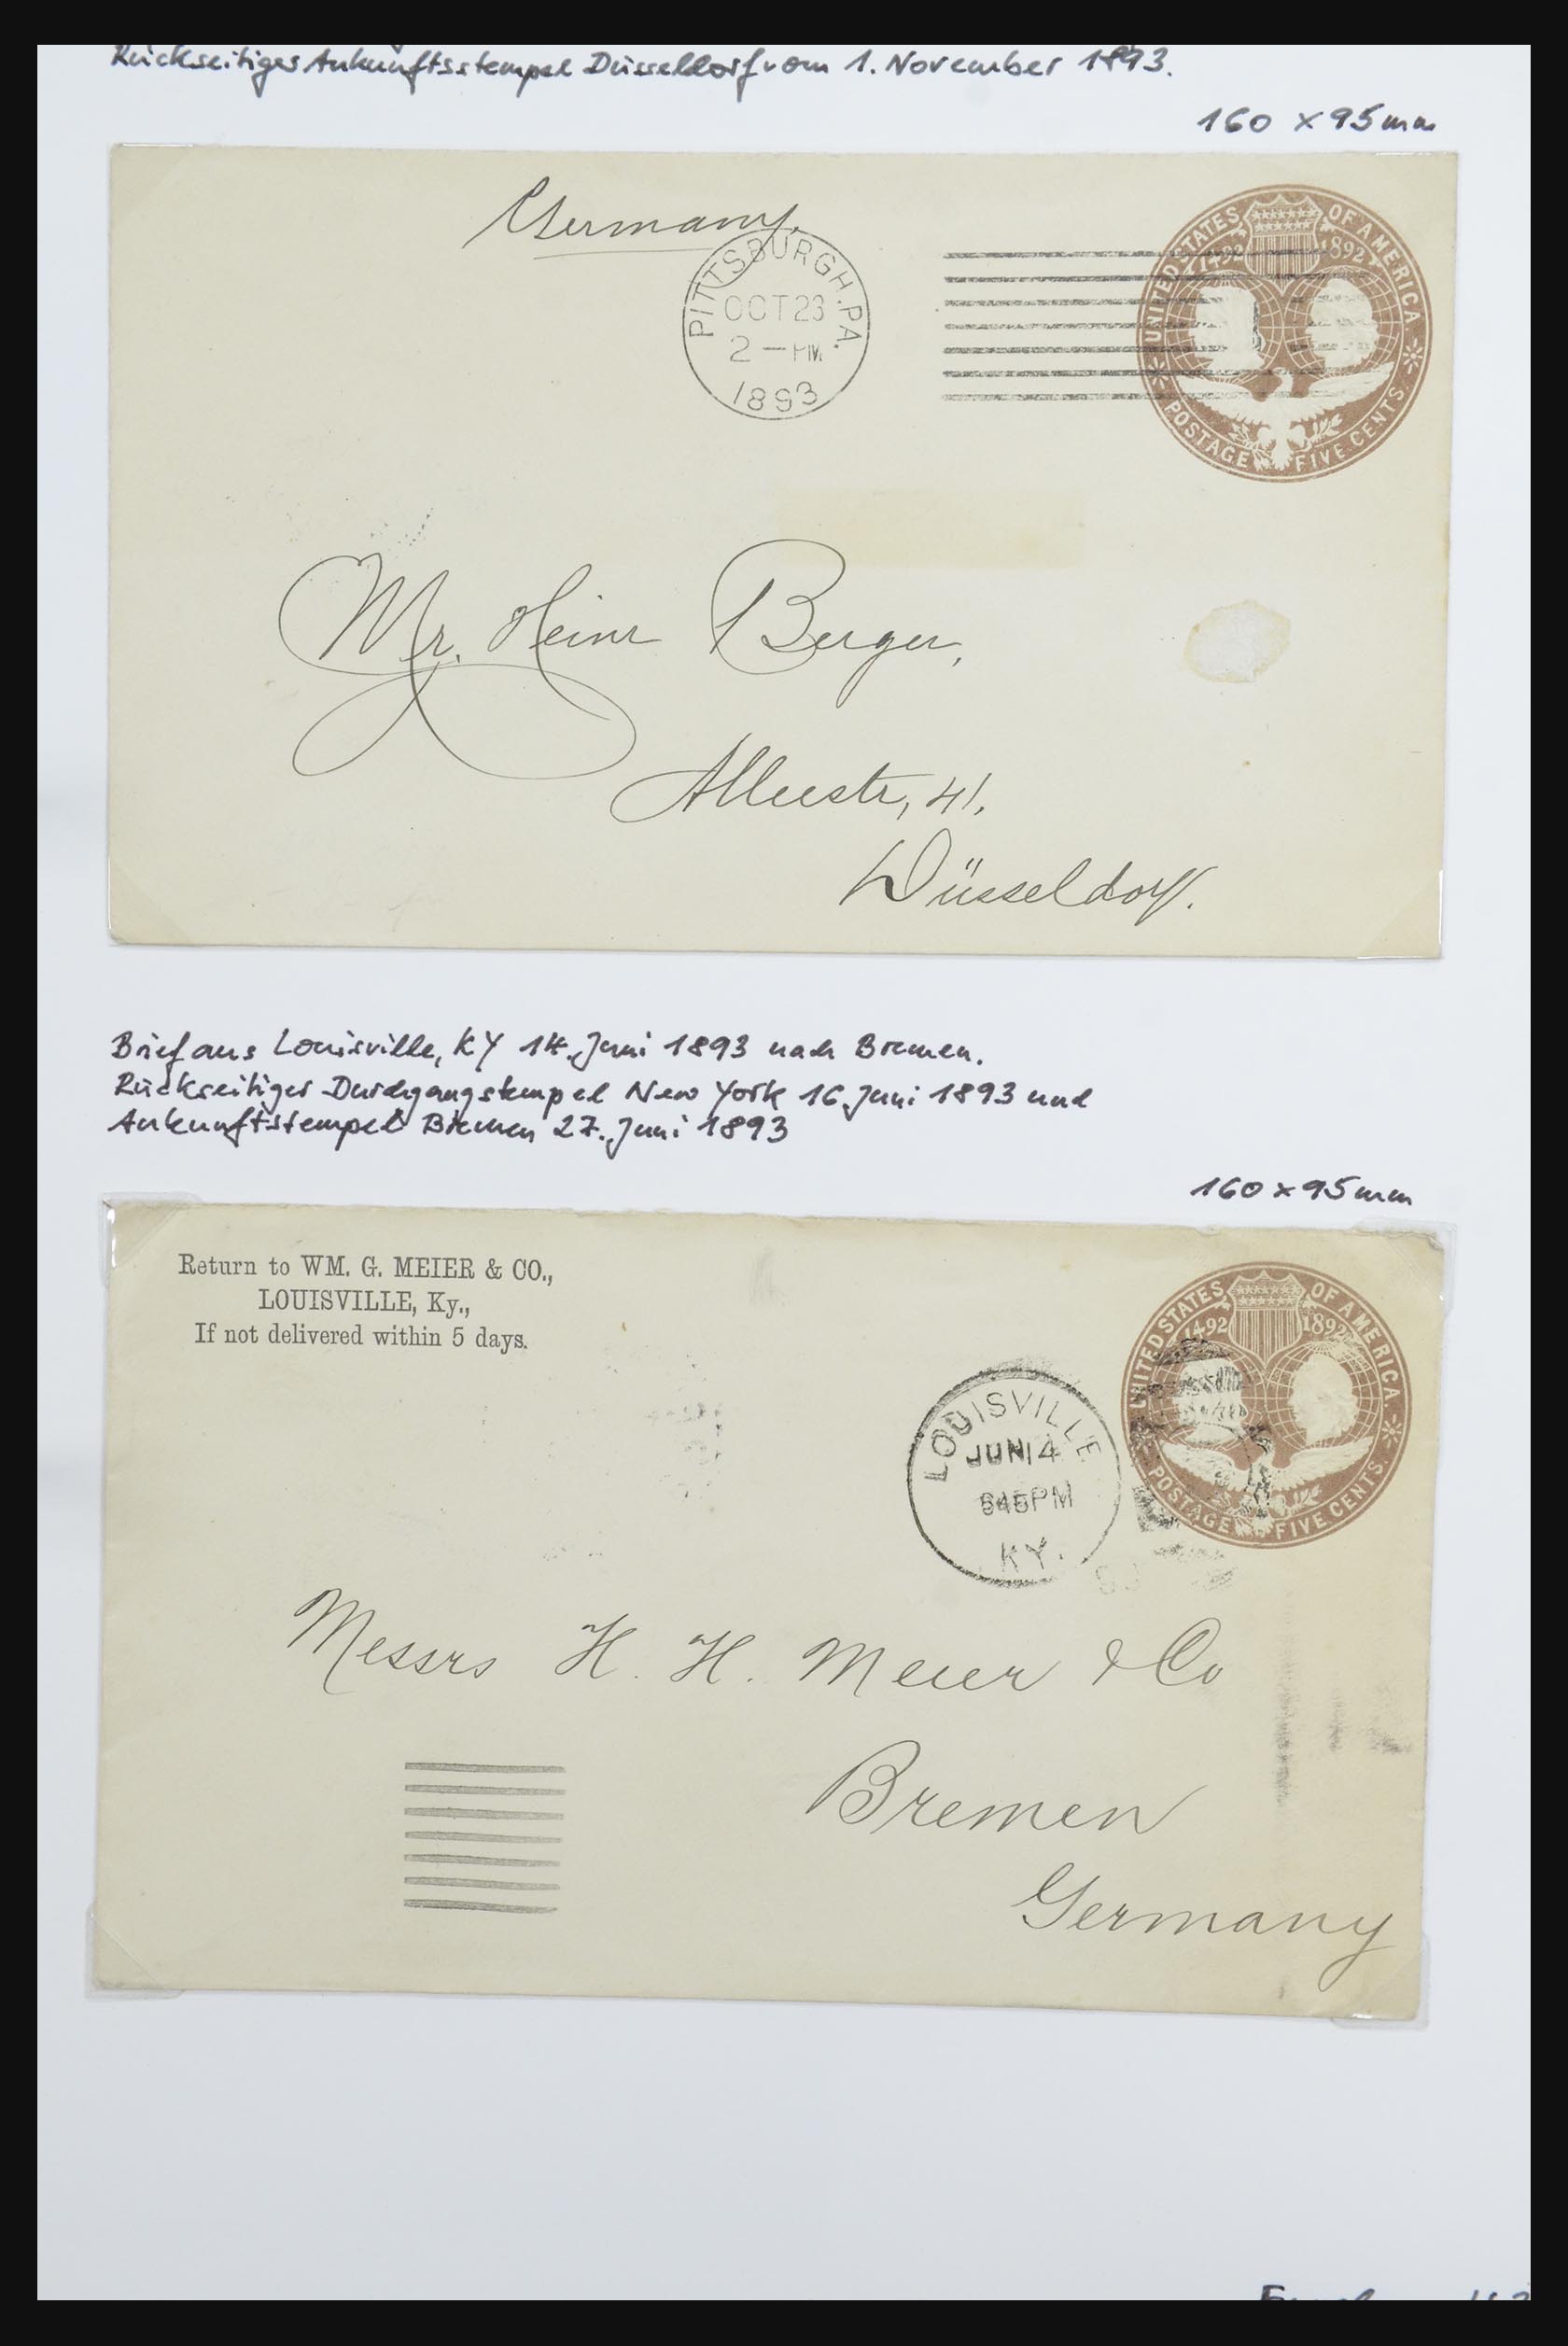 Rückseitiges Ankunftsstempel Düsseldorf vom 1. November 1893.
160 x 95 mm
Germany.
PITTSBURGH, PA.
OCT 23
2 - PM
1893
UNITED STATES OF AMERICA
1492 1892
POSTAGE FIVE CENTS
Mr. Heinr Berger,
Alleestr, 41.
Düsseldorf.
Brief aus Louisville, KY 14. Juni 1893 nach Bremen.
Rückseitiger Durchgangstempel New York 16. Juni 1893 und
Ankunftstempel Bremen 27. Juni 1893
160 x 95 mm
Return to WM. G. MEIER & CO.,
LOUISVILLE, Ky.,
If not delivered within 5 days.
UNITED STATES OF AMERICA
1492 1892
POSTAGE FIVE CENTS.
LOUISVILLE
JUN 14
645PM
KY.
Messrs H. H. Meier & Co
Bremen
Germany